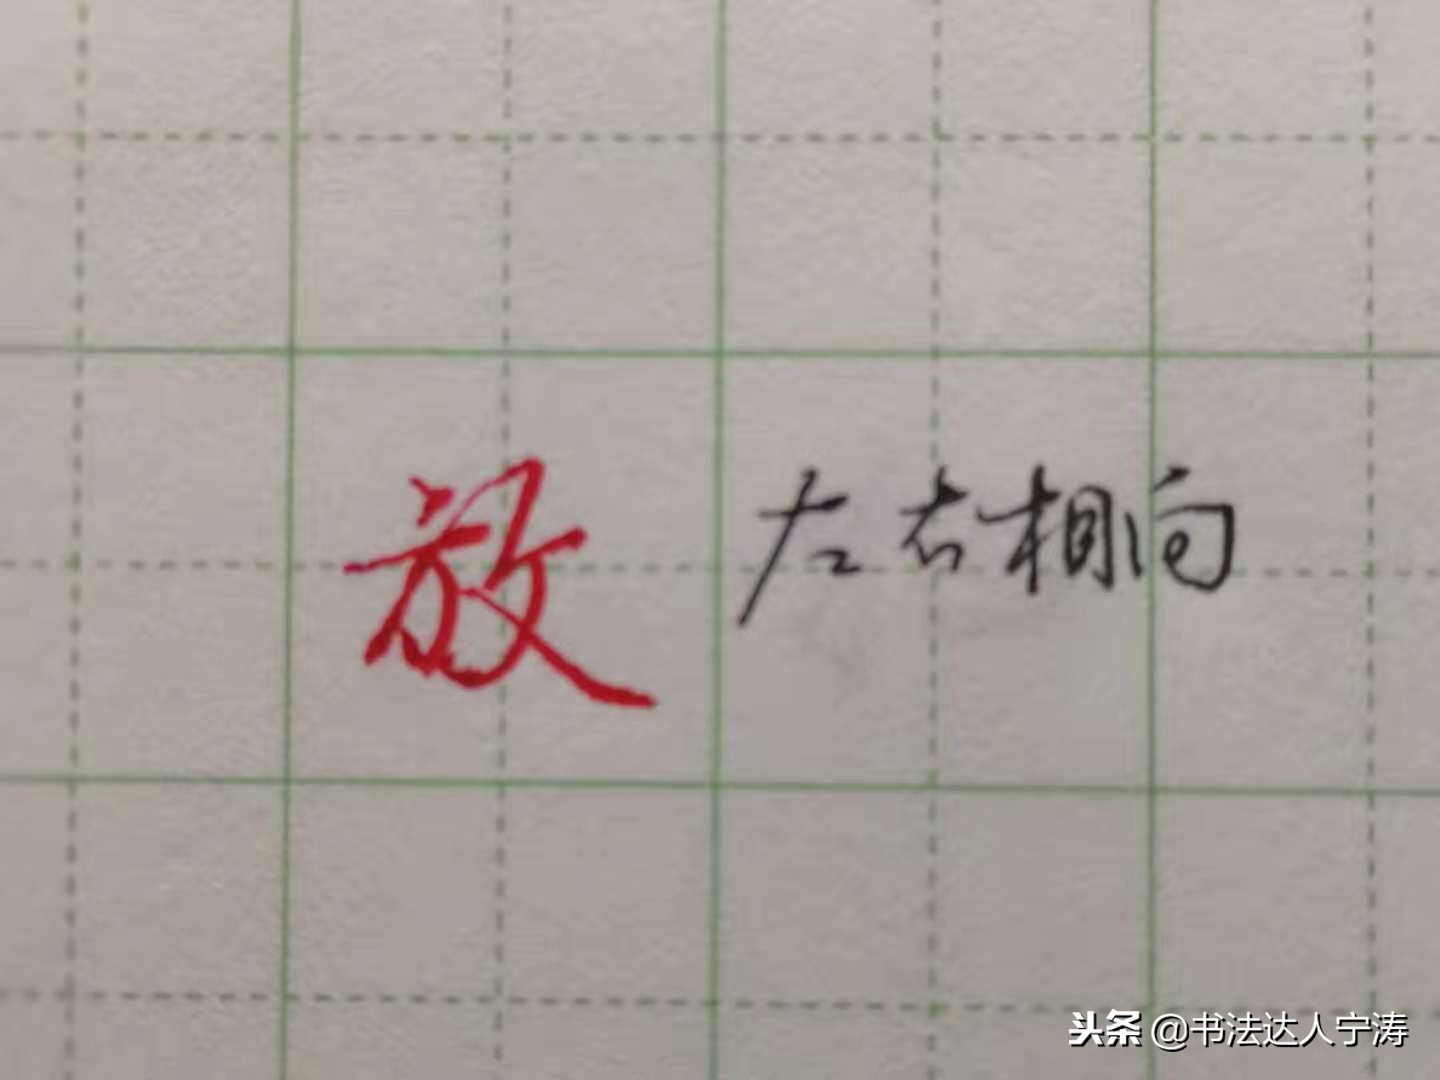 放 左右相向
头条 @书法达人宁涛